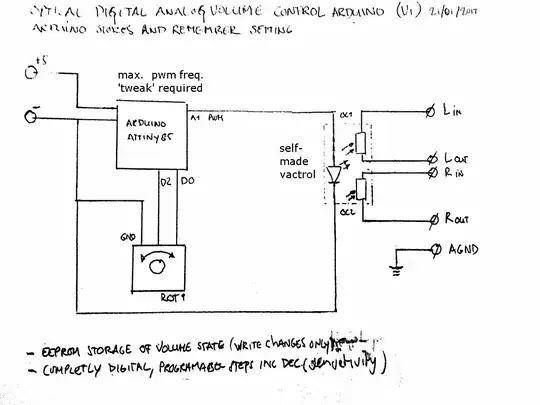 OPTICAL DIGITAL ANALOG VOLUME CONTROL ARDUINO (V1) 21/01/2017
ARDUINO STORES AND REMEMBER SETTING
+5
-
max. pwm freq.
'tweak' required
ARDUINO
ATTINY85
A1 PWM
D2 D0
GND
ROT1
self-
made
vactrol
OC1
OC2
LIN
LOUT
RIN
ROUT
AGND
- EEPROM STORAGE OF VOLUME STATE (WRITE CHANGES ONLY)
- COMPLETLY DIGITAL, PROGRAMABLE STEPS INC DEC (sensitivity)